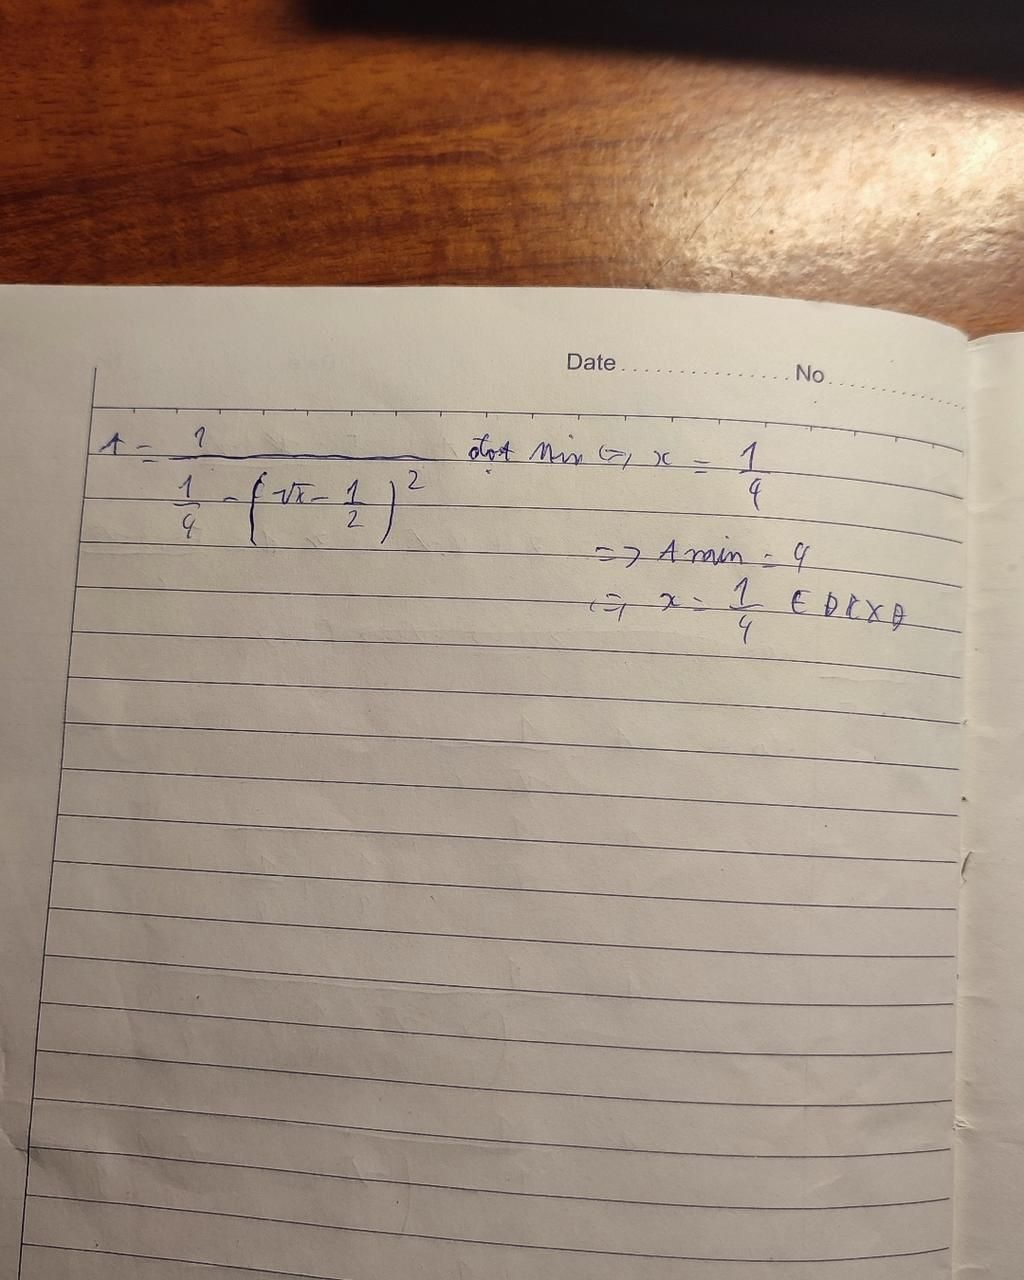 Date ............... No ............
A = 1 / (1/4 - (√x - 1/2)²) đạt Min <=> x = 1/4
=> A min = 4
<=> x = 1/4 ∈ ĐKXĐ